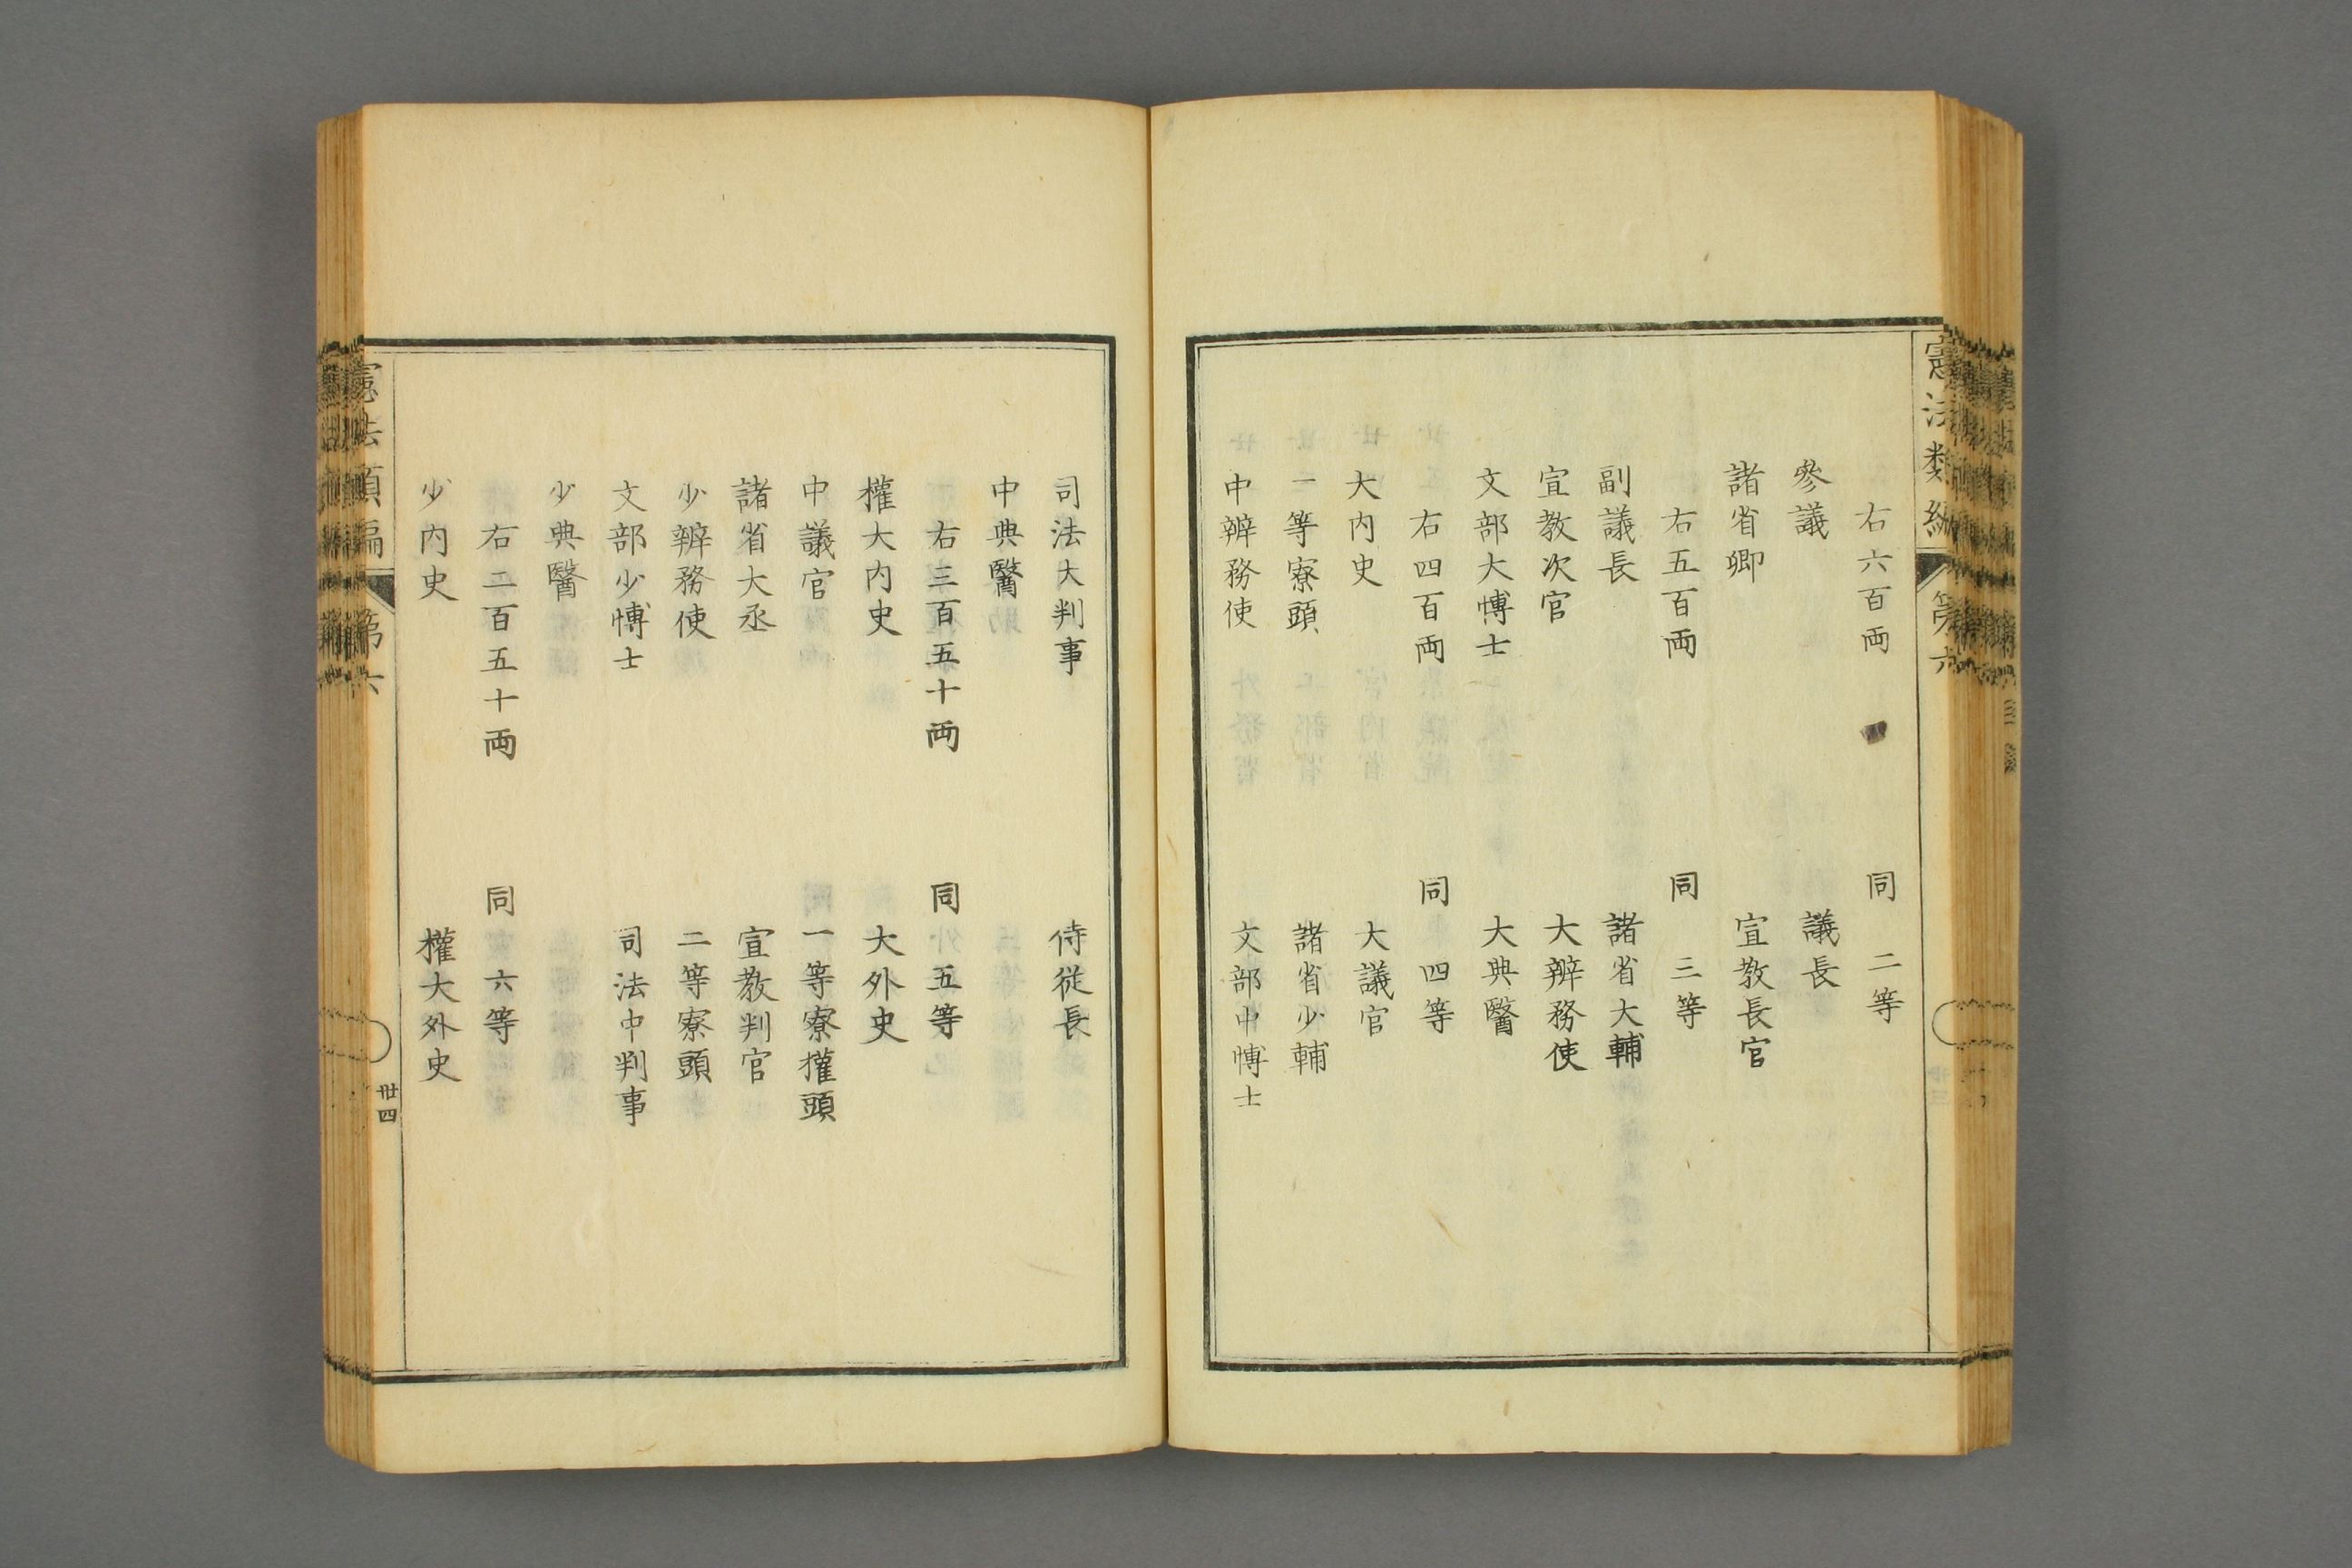 憲法類編 第六
右六百両 同 二等
參議 議長
諸省卿 宣教長官
右五百両 同 三等
副議長 諸省大輔
宣教次官 大辨務使
文部大博士 大典醫
右四百両 同 四等
大内史 大議官
一等寮頭 諸省少輔
中辨務使 文部中博士
司法大判事 侍従長
中典醫
右三百五十両 同 五等
權大内史 大外史
中議官 一等寮權頭
諸省大丞 宣教判官
少辨務使 二等寮頭
文部少博士 司法中判事
少典醫
右二百五十両 同 六等
少内史 權大外史
憲法類編 第六 卅四